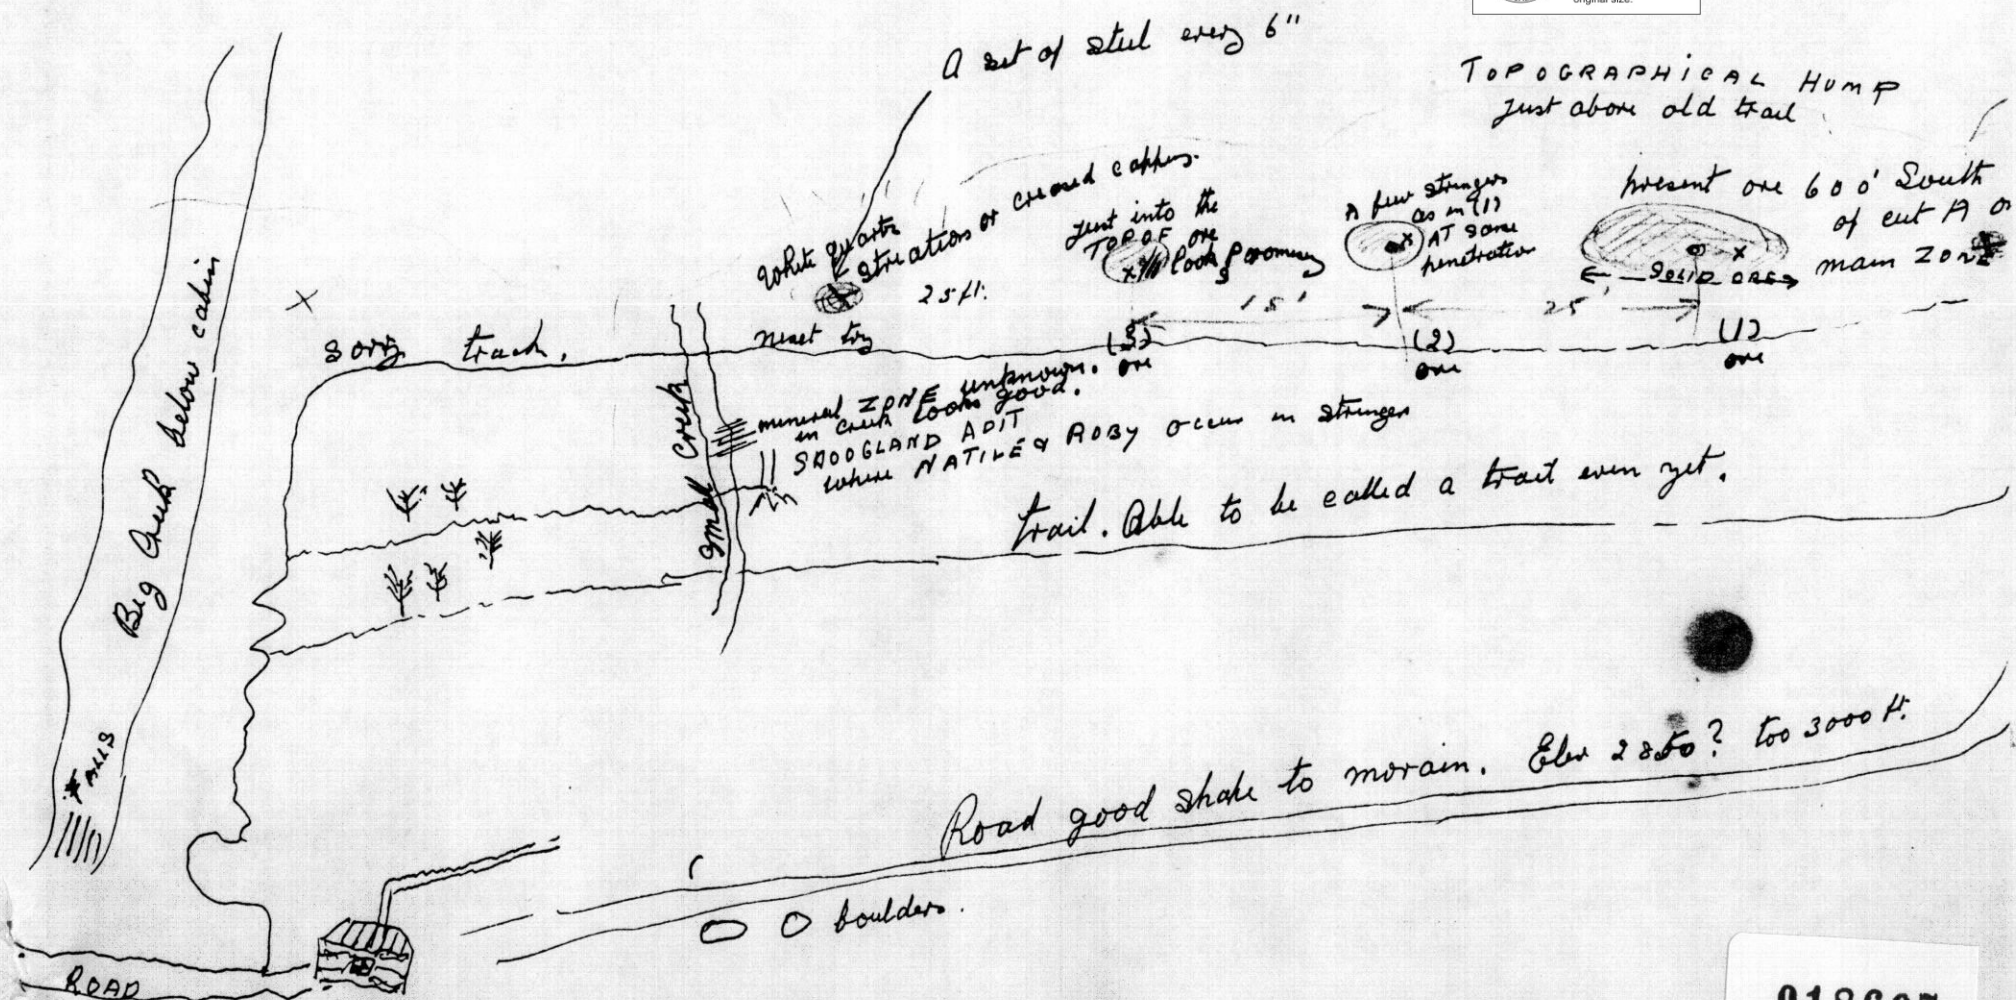 original size.
A set of steel every 6"
TOPOGRAPHICAL HUMP
just above old trail
White quartz
striations or creased
25 ft.
next try
Just into the
TOP OF ore
looks
A few stringers
as in (1)
AT same
penetration
present ore 600' South
of cut A or
main ZONE
SOLID ORE
15'
25'
(3)
ore
(2)
ore
(1)
ore
sorry track.
Big Creek below cabin
FALLS
small creek
mineral ZONE unknown.
in creek looks good.
ADIT
where NATIVE & RUBY occur in stringers
trail. Able to be called a trail even yet.
Road good shake to morain. Elev 2850? too 3000 ft.
boulders.
ROAD